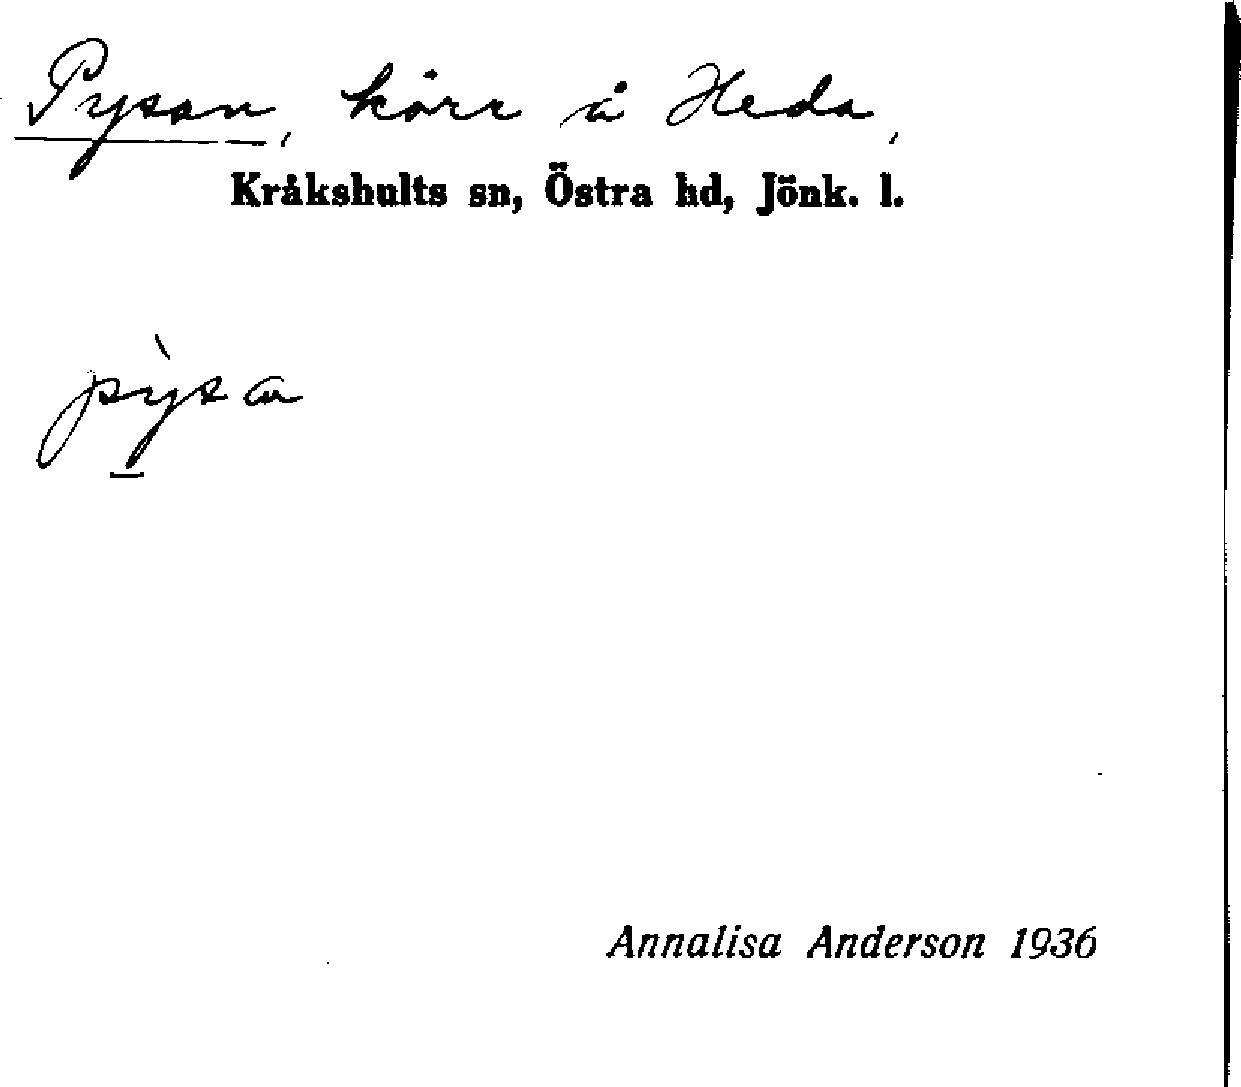 Pysan, kärr å Heda,
Kråkshults sn, Östra hd, Jönk. l.
pỳsa
Annalisa Anderson 1936